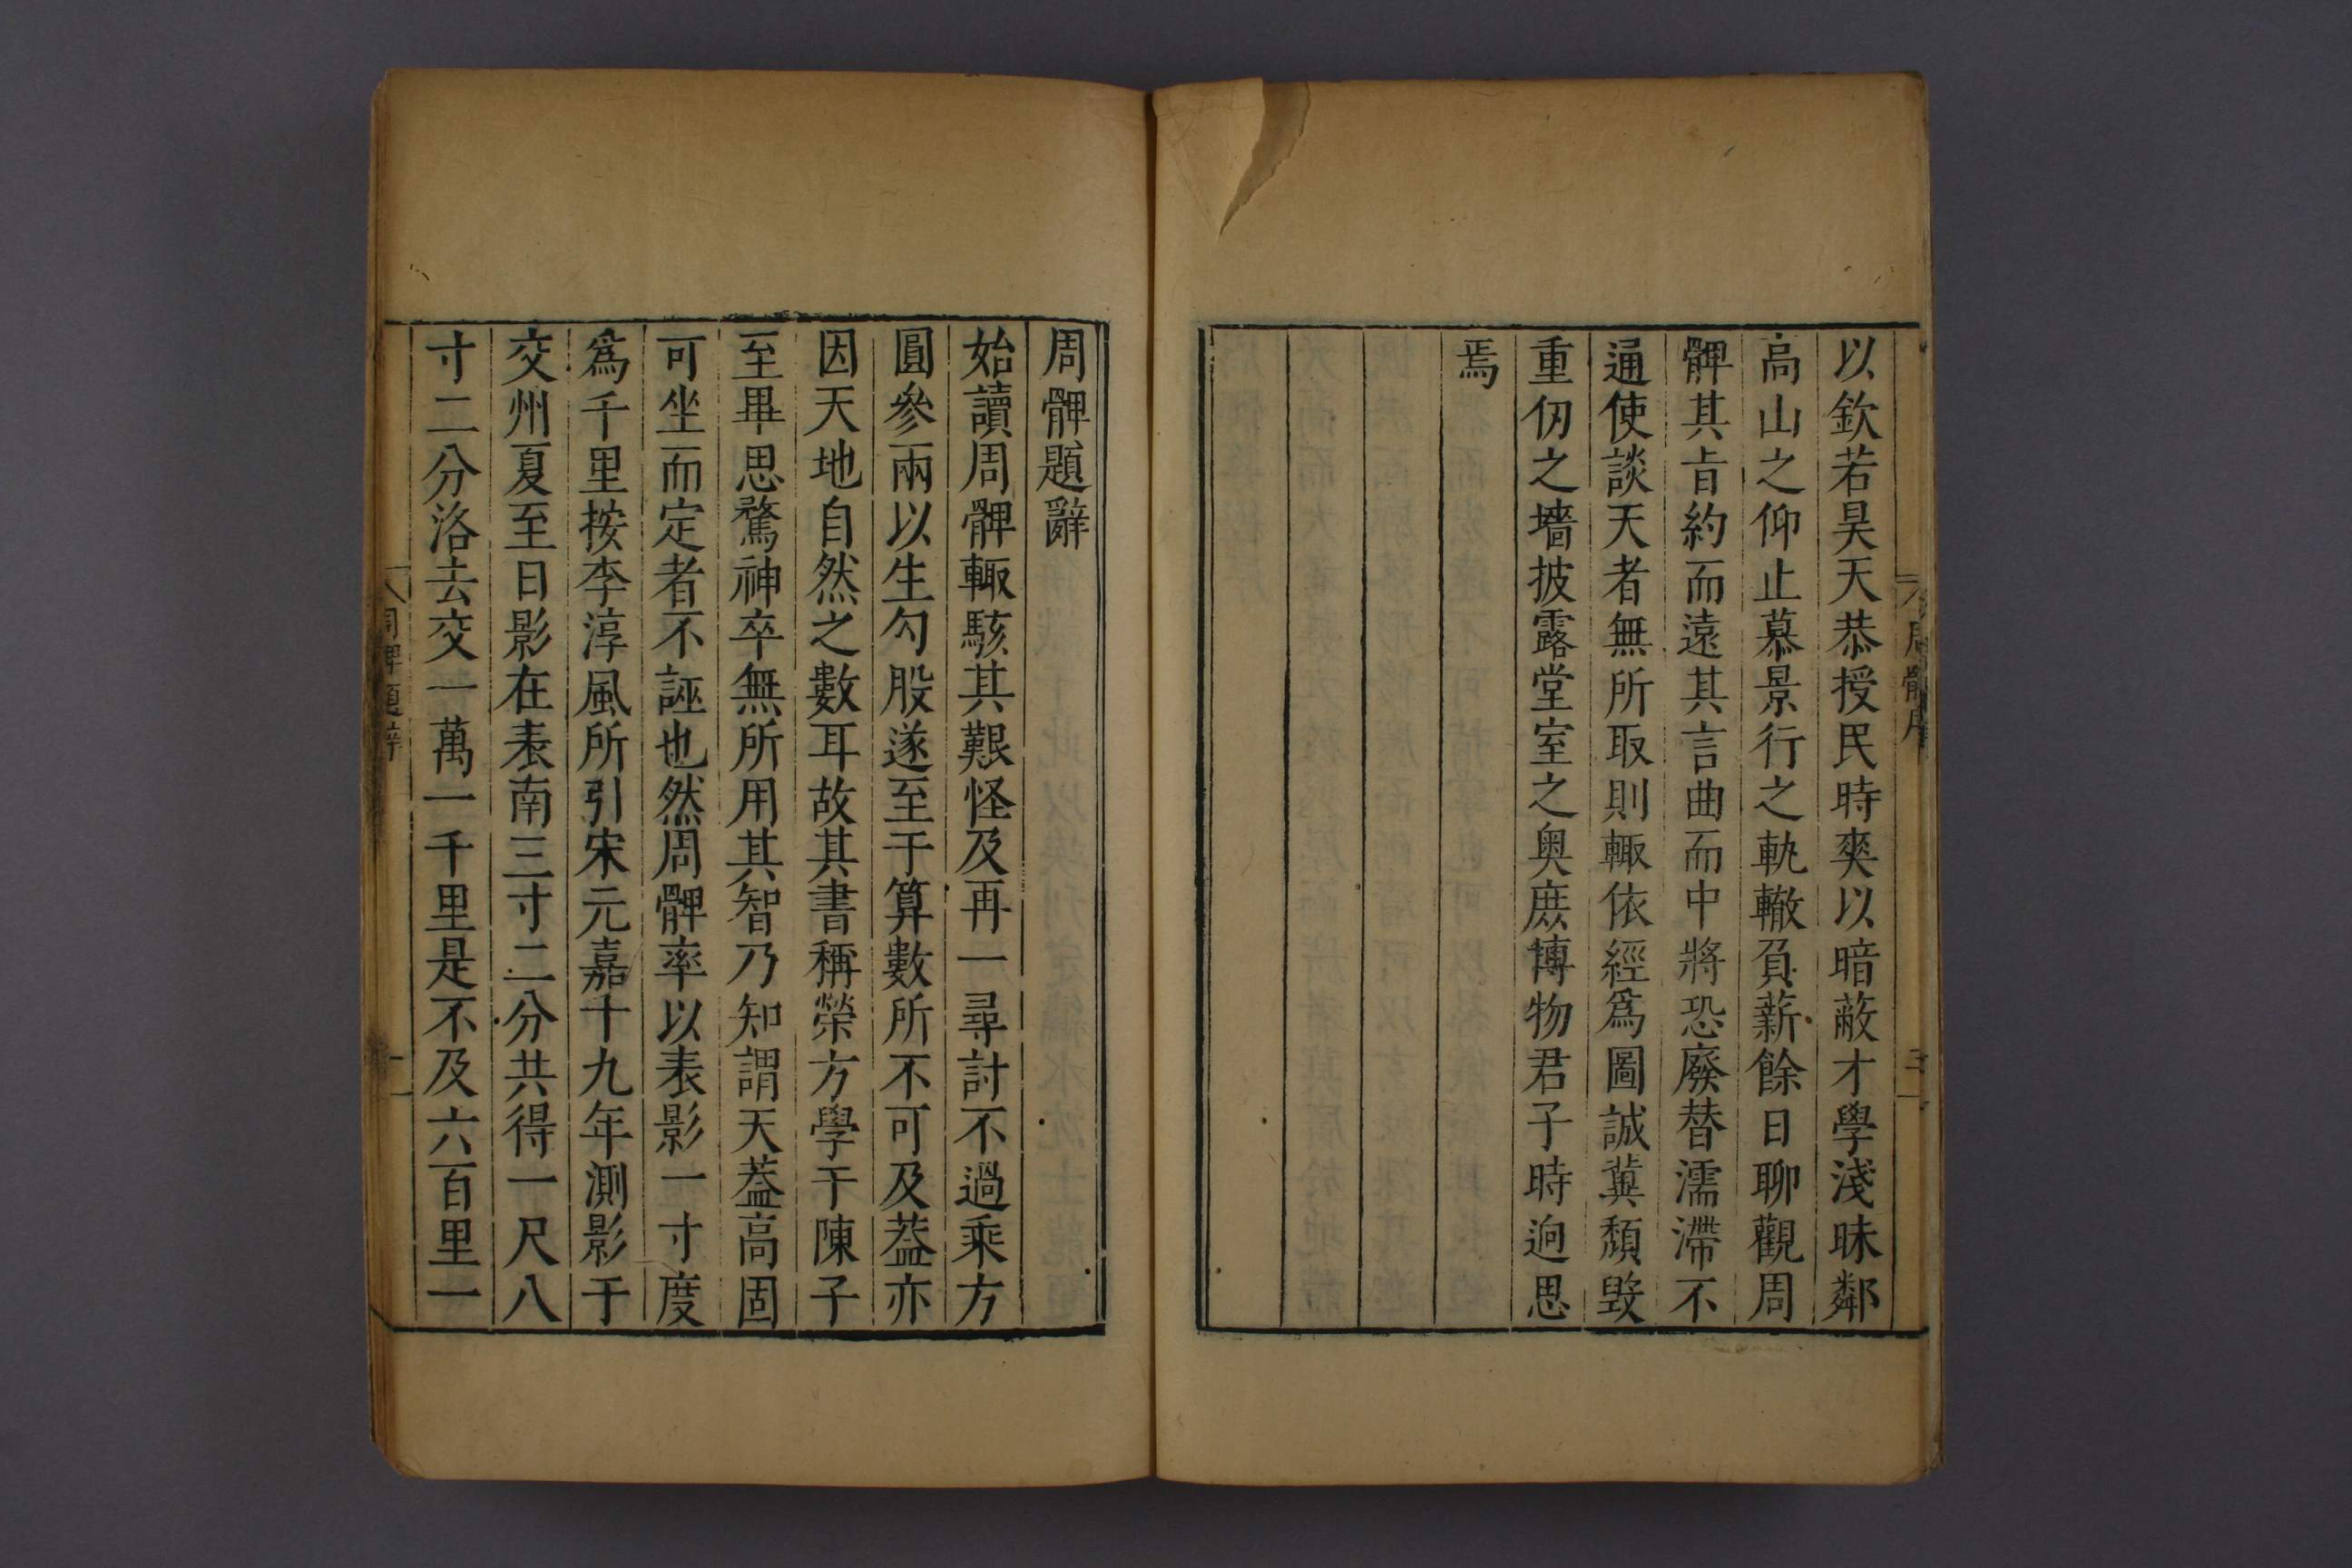 以欽若昊天恭授民時爽以暗蔽才學淺昧鄰
高山之仰止慕景行之軌轍負薪餘日聊觀周
髀其㫖約而遠其言曲而中將恐廢替濡滯不
通使談天者無所取則輙依經爲圖誠冀頽毀
重仞之墻披露堂室之奥庶博物君子時逈思
焉
周髀題辭
始讀周髀輙駭其艱怪及再一尋討不過乘方
圓參兩以生勾股遂至于算數所不可及葢亦
因天地自然之數耳故其書稱榮方學于陳子
至畢思騖神卒無所用其智乃知謂天葢高固
可坐而定者不誣也然周髀率以表影一寸度
爲千里按李淳風所引宋元嘉十九年測影于
交州夏至日影在表南三寸二分共得一尺八
寸二分洛去交一萬一千里是不及六百里一
周髀題辭
一